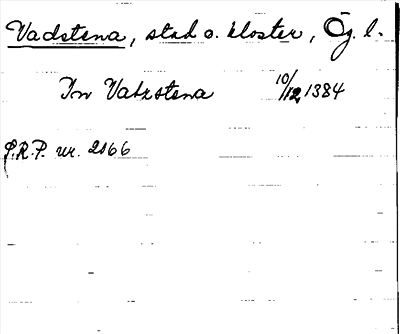 Vadstena, stad o. kloster, Ög. l.
In Vatzstena 10/12 1384
S.R.P. nr. 2866